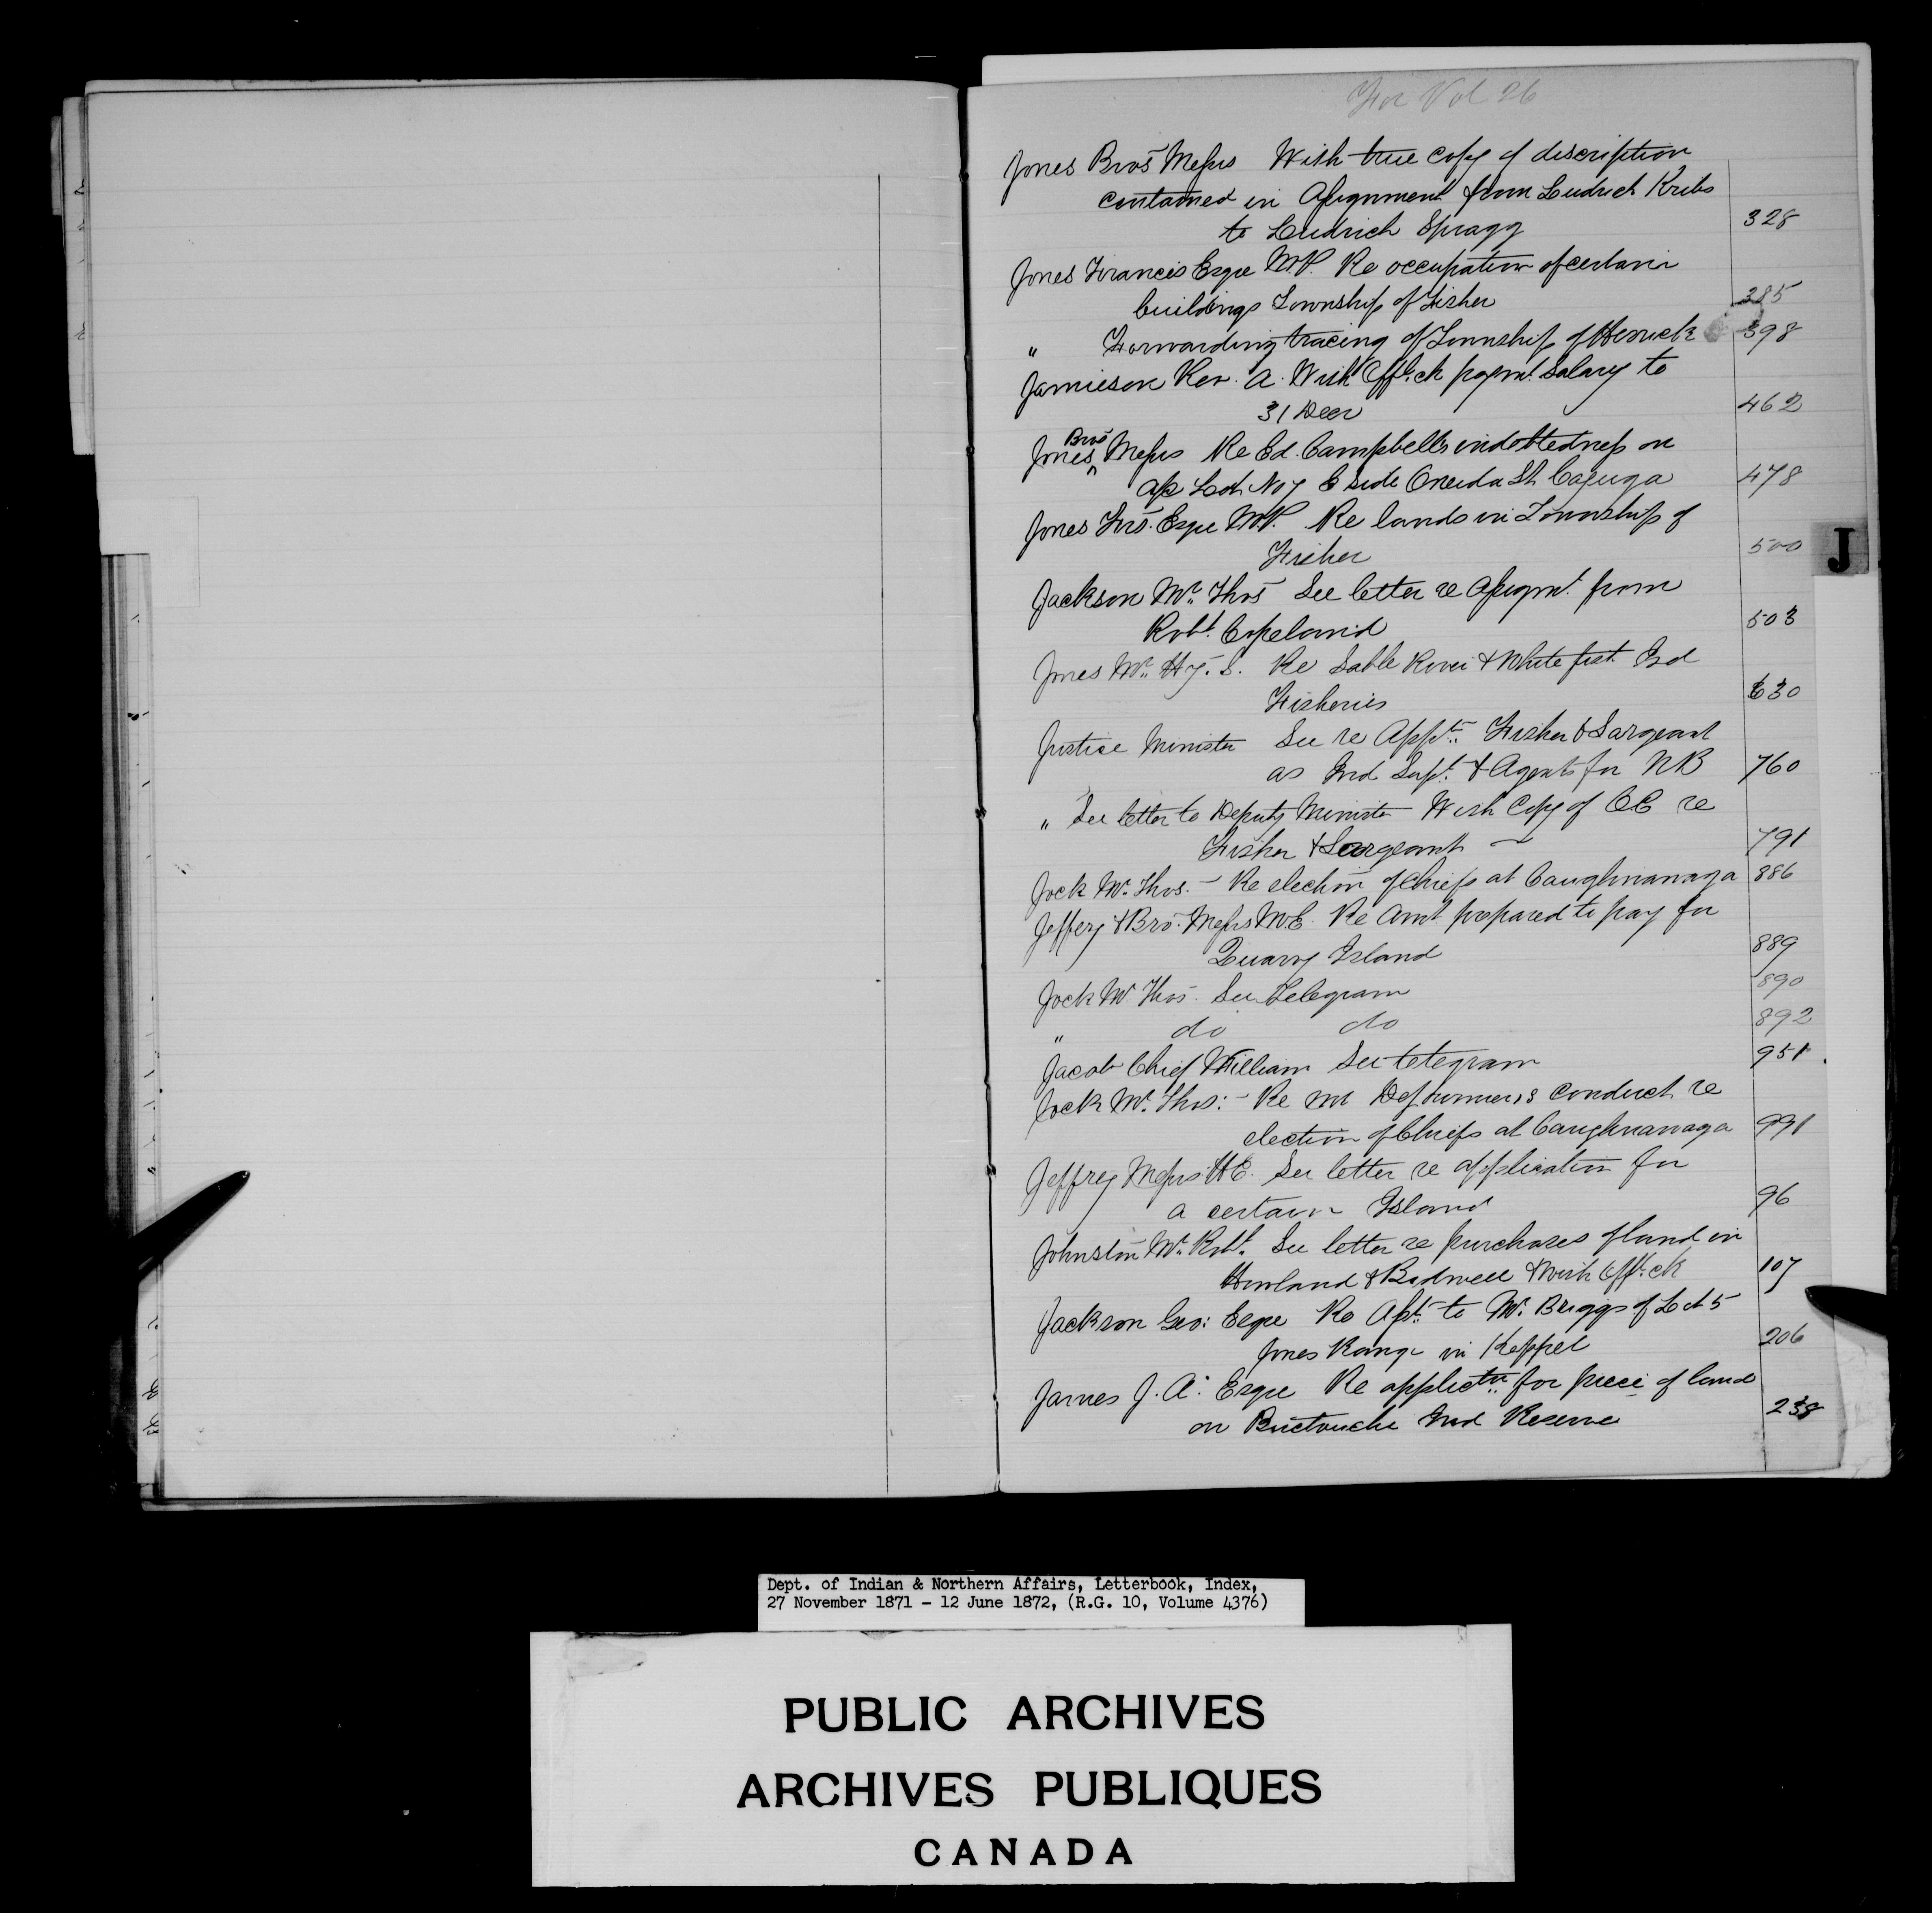 For Vol 26
Jones Bros Messrs With true copy of description
contained in Assignment from Ludrich Kribs
to Ludrich Spragg 328
Jones Francis Esqre M.P. Re occupation of certain
buildings Township of Fisher 385
" Forwarding tracing of Township of Herrick 398
Jamieson Rev. A. With Offl. ck paymt. salary to
31 Decr 462
Jones Bros Messrs Re Ed. Campbell's indebtedness on
a/c Lot No 7 E side Oneida St Cayuga 478
Jones Frs. Esqre M.P. Re lands in Township of
Fisher 500
Jackson Mr. Thos See letter re Assignmt. from
Robt. Copeland 503
Jones Mr. Hy. S. Re Sable River & White fish Ind
Fisheries 630
Justice Minister See re Appt. Fisher & Sargeant
as Ind Supt. & Agents for NB 760
" See letter to Deputy Minister With Copy of OC re
Fisher & Sargeant 791
Jock Mr. Thos. - Re election of Chiefs at Caughnawaga 886
Jeffery & Bro. Messrs M.E. Re Amt prepared to pay for
Quarry Island 889
Jock Mr Thos. See Telegram 890
" do do 892
Jacob Chief William See telegram 951
Jock Mr. Thos: - Re Mr conduct re
election of Chiefs at Caughnawaga 991
Jeffrey Messrs H E. See letter re application for
a certain Island 96
Johnston Mr. Robt. See letter re purchases of land in
Howland & Bidwell & with Offl. ck 107
Jackson Geo: Esqre Re Apt. to Mr. Briggs of Lot 5
Jones Range in Keppel 206
James J. A. Esqre Re applictn. for piece of land
on Buctouche Ind Reserve 238
J
Dept. of Indian & Northern Affairs, Letterbook, Index,
27 November 1871 - 12 June 1872, (R.G. 10, Volume 4376)
PUBLIC ARCHIVES
ARCHIVES PUBLIQUES
CANADA